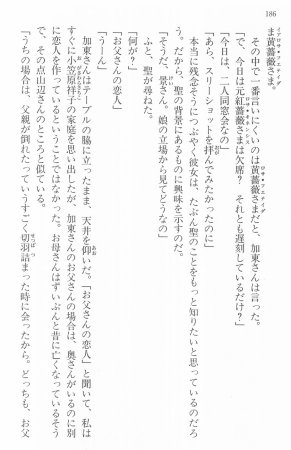 186
ま黄薔薇さま。
その中で一番言いにくいのは黄薔薇さまだと、加東さんは言った。
「で、今日は元紅薔薇さまは欠席? それとも遅刻しているだけ?」
「今日は、二人同窓会なの」
「あら、スリーショットを拝んでみたかったのに」
本当に残念そうにつぶやく彼女は、たぶん聖のことをもっと知りたいと思っているのだろ
う。だから、聖の背景にあるものに興味を示すのだ。
「そうだ、景さん。娘の立場から見てどうなの」
ふと、聖が尋ねた。
「何が?」
「お父さんの恋人」
「うーん」
加東さんはテーブルの脇に立ったまま、天井を仰いだ。「お父さんの恋人」と聞いて、私は
すぐに小笠原祥子の家庭を思い出したが、加東さんのお父さんの場合は、奥さんがいるのに別
に恋人を作っているということではなかった。お母さんはずいぶんと昔に亡くなっているそう
で、その点山辺さんのところと似ている。
「うちの場合は、父親が倒れたっていうすごく切羽詰まった時に会ったから。どっちも、お父